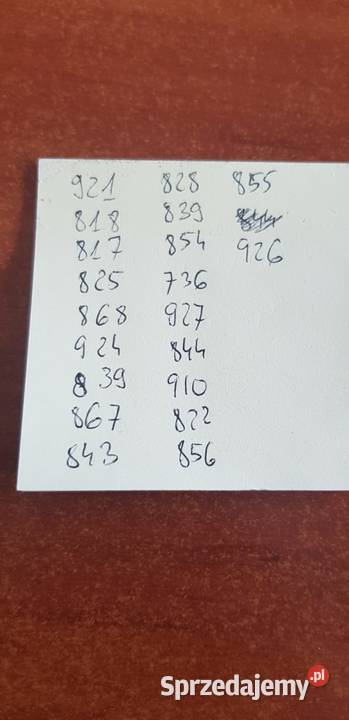 921 828 855
818 839
817 854 926
825 736
868 927
924 844
839 910
867 822
843 856
Sprzedajemy.pl